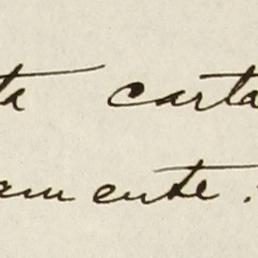 ta carta
amente.